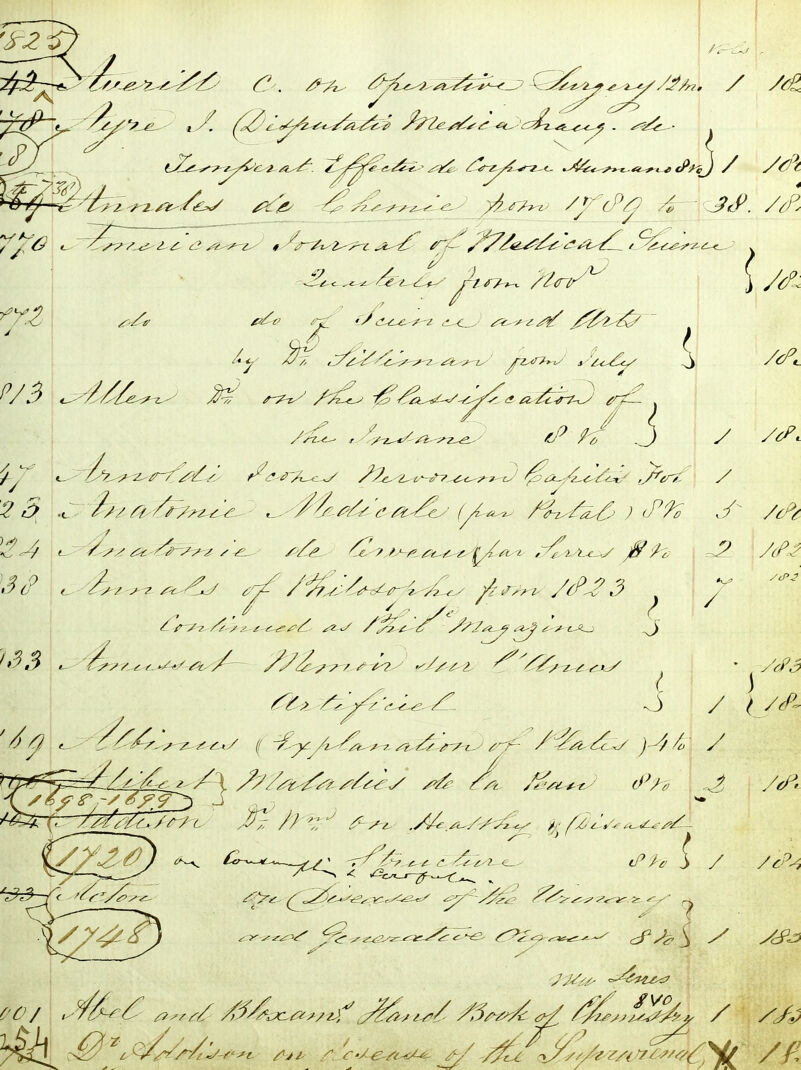 1825 Vols.
42 Averill C. on Operative Surgery 12mo 1 182
78 Ayre J. (Disputatio Medica Inaug. de
Temperat. Effectu de Corpore Humano 8vo } 1 180
to 738
69 Annales de Chemie from 1789 to 38. 18
770 American Journal of Medical Science
Quarterly from Novr } 182
772 do do of Science and Arts
by Dr. Silliman from July } 18
813 Allen Dr. on the Classification of
the Insane 8vo } 1 183
47 Arnoldi Icones Nervorum Capitis Fol 1
23 Anatomie Medicale (par Portal) 8vo 5 180
24 Anatomie de Cerveau (par Serres 8vo 2 182
38 Annals of Philosophe from 1823 7 182
Continued as Phile Magazine }
933 Amussat Memoir sur l'Anus 183
Artificiel } 1 { 184
69 Albinus (Explanation of Plates) 4to 1
Alibert } Maladies de la Peau 8vo 2 183
1698-1699
104 Addison Dr. Wm on Healthy & (Diseased
1720 on Consumptn & Scrofula. Structure 8vo } 1 184
133 Acton on Diseases of the Urinary
1748 and Generative Organs 8vo } 1 183
New Series
001 Abel and Bloxam's Hand Book of Chemistry 8vo 1 183
254 Dr Addison on disease of the Suprarenal 18